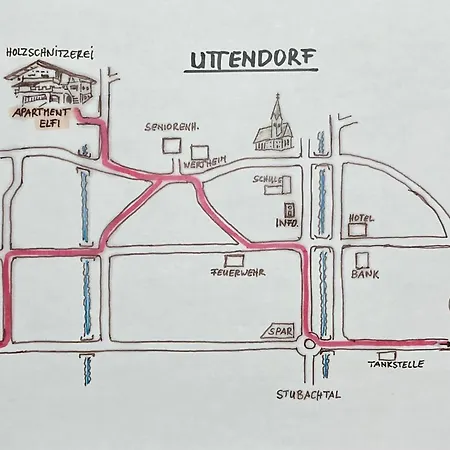 UTTENDORF
HOLZSCHNITZEREI
APARTMENT
ELFI
SENIORENH.
WERTHEIM
SCHULE
INFO.
HOTEL
FEUERWEHR
BANK
SPAR
TANKSTELLE
STUBACHTAL